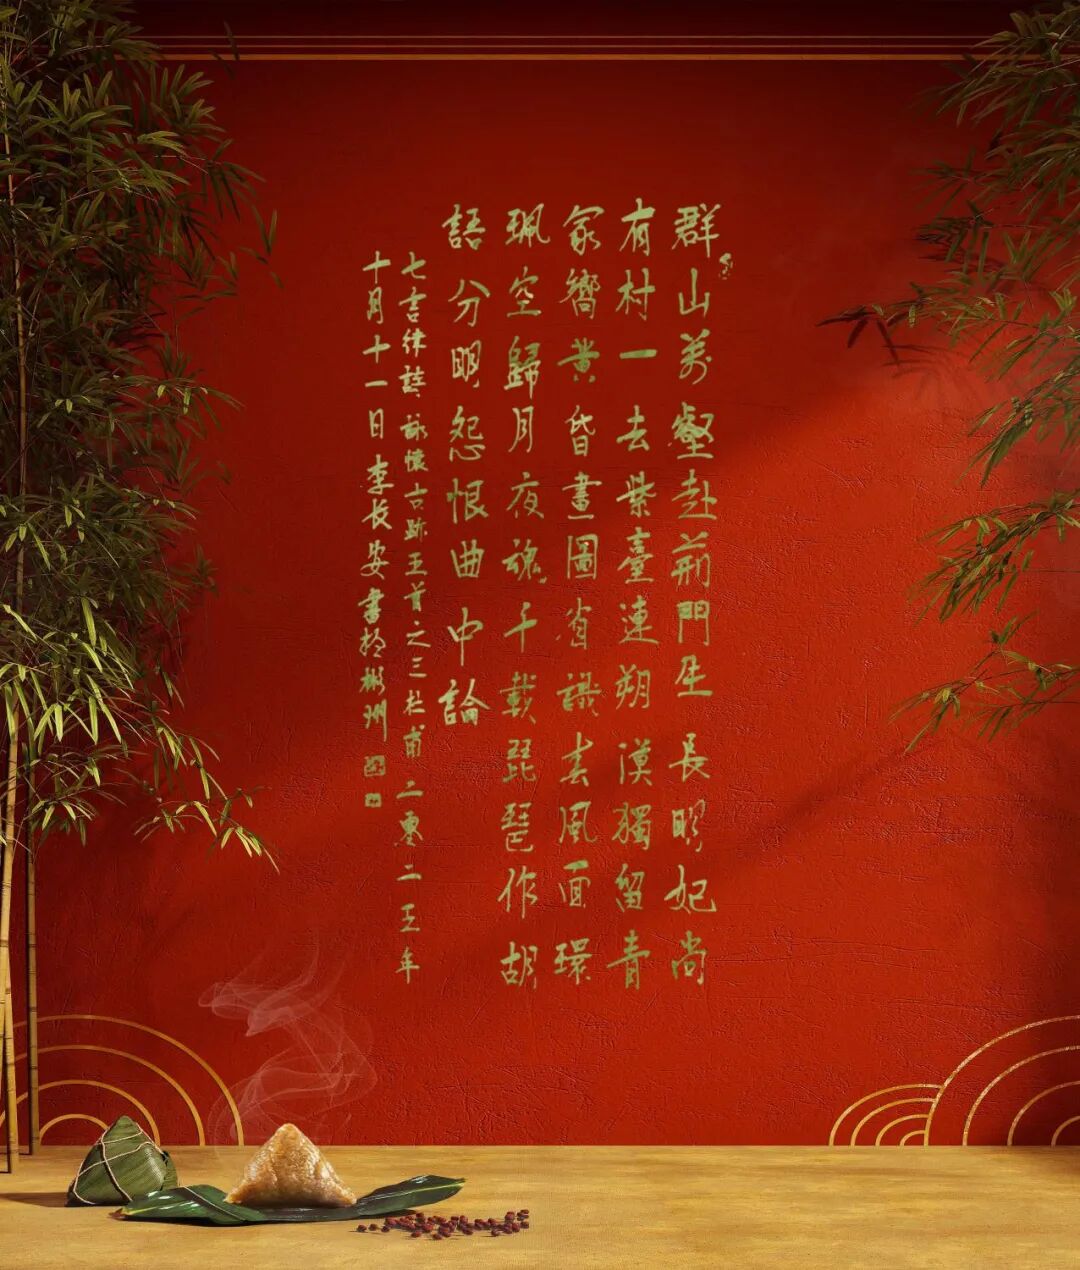 群山萬壑赴荊門生長明妃尚
有村一去紫臺連朔漠獨留青
冢嚮黃昏畫圖省識春風面環
珮空歸月夜魂千載琵琶作胡
語分明怨恨曲中論
七言律詩詠懷古跡五首之三杜甫二零二五年
十月十一日李長安書於州